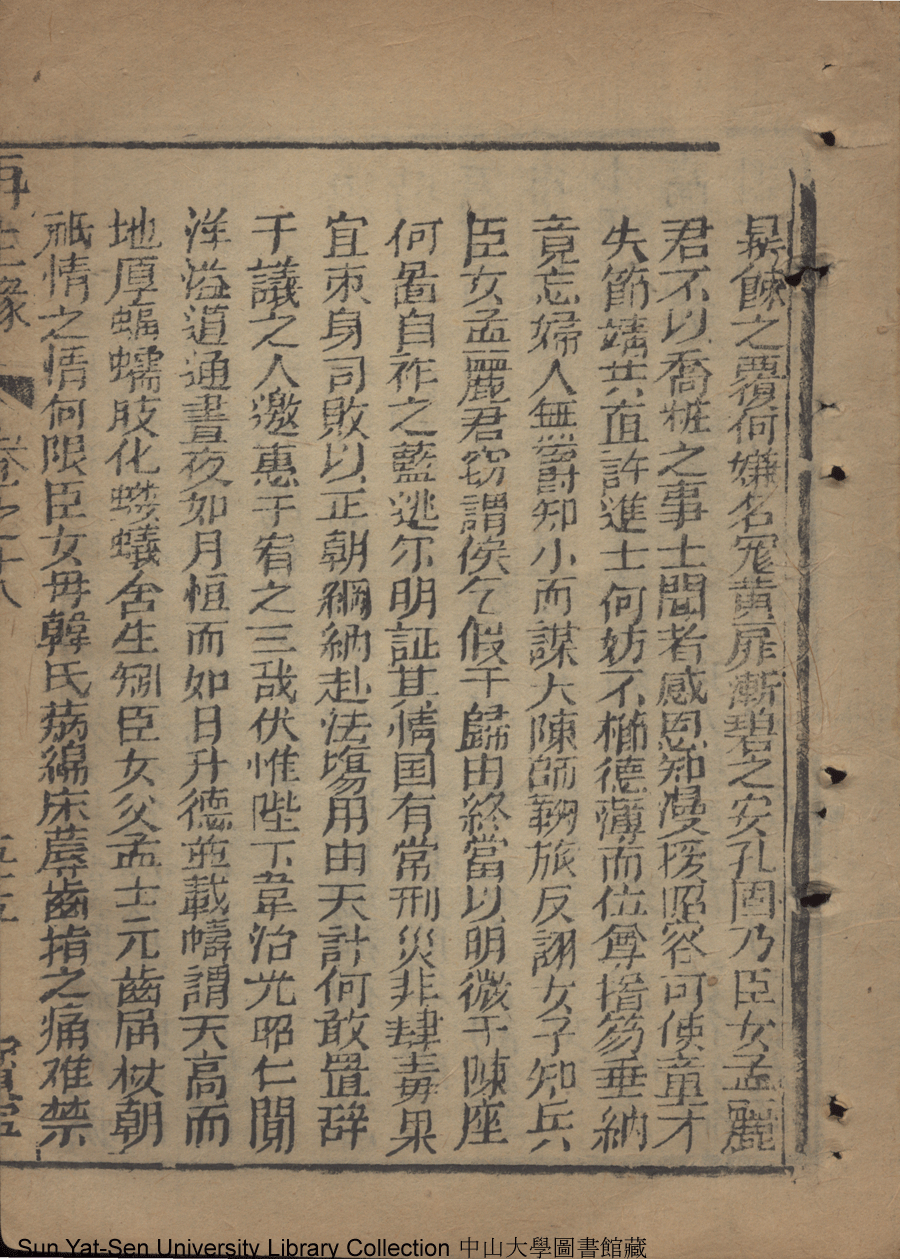 餗之覆何嫌名冠黃扉漸碧之安孔固乃臣女孟麗
君不以喬粧之事士聞者感恩知漫援昭容可使童才
失節靖共直許進士何妨不櫛德薄而位尊搢笏垂紳
竟忘婦人無爵知小而謀大陳師鞠旅反詡女子知兵
臣女孟麗君窃謂俟乞假于歸由終當以明微于陳座
何啚自祚之藍逃尔明証其情国有常刑災非肆毒果
宜束身司敗以正朝綱納赴法塲用由天計何敢置辞
于議之人邀惠于宥之三哉伏惟陛下韋治光昭仁聞
洋溢道通晝夜如月恒而如日升德並載幬謂天高而
地厚蝠蠕肢化螻蟻舍生矧臣女父孟士元齒届杖朝
祗情之情何限臣女毋韓氏病綿床蓐齒指之痛难禁
再生緣 卷之十八
Sun Yat-Sen University Library Collection 中山大學圖書館藏